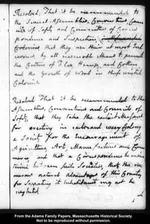 Resolved, That it be recommended to
the several Assemblies, Conventions, Com-
mittees of Safety and Committees of Corres-
pondence and Inspection in
Colonies that they use their utmost
to all reasonable Means to promote
the Culture of Flax, Hemp, and Cotton
and the Growth of Wool in these united
Colonies.
Resolved That it be recommended to the
Assemblies, Conventions and Committees of
Safety, that they take the earliest
for erecting in each and every Colony
a Society for the Improvement of
Agriculture, Arts, Manufactures, and Com-
merce, and that a Correspondence
between such Societies, that the
natural Advantages of this Country
for supporting its Inhabitants may not be
neglected.
From the Adams Family Papers, Massachusetts Historical Society
Not to be reproduced without permission.